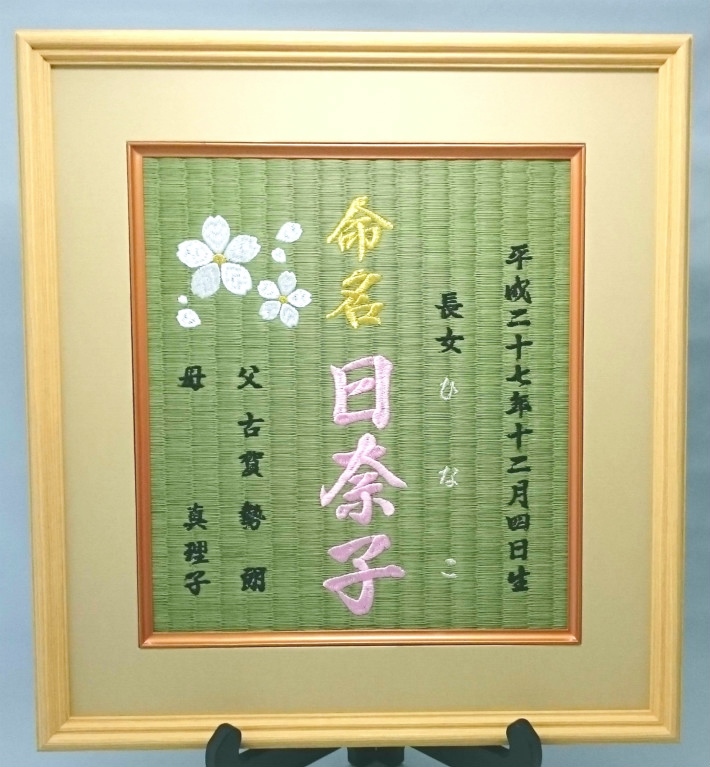 平成二十七年十二月四日生
長女 ひなこ
命名 日奈子
父 古賀 勢朗
母 真理子